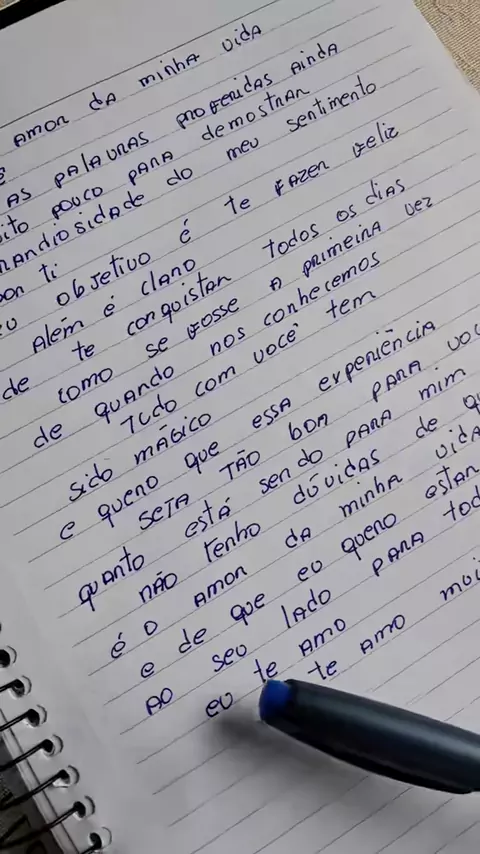 Amor da minha vida
As palavras proferidas ainda
pouco para demostrar
do meu sentimento
por ti
objetivo é te fazer feliz
Além é claro
de te conquistar todos os dias
como se fosse a primeira vez
de quando nos conhecemos
Tudo com você tem
sido mágico
e quero que essa experiência
seja tão boa para
quanto está sendo para mim
não tenho dúvidas de
é o amor da minha vida
e de que eu quero estar
ao seu lado para
eu te amo
te amo